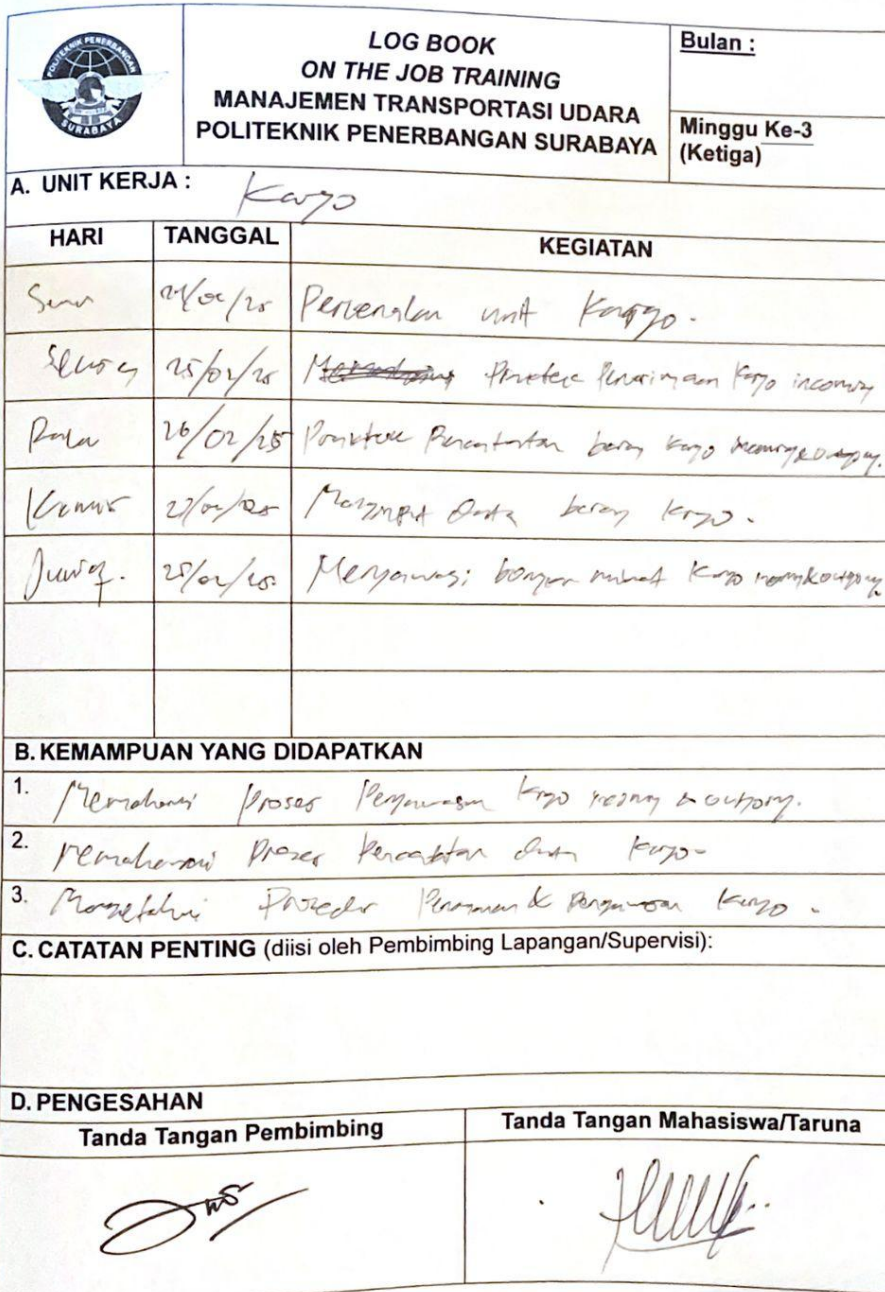 POLITEKNIK PENERBANGAN
SURABAYA
LOG BOOK
ON THE JOB TRAINING
MANAJEMEN TRANSPORTASI UDARA
POLITEKNIK PENERBANGAN SURABAYA
Bulan :
Minggu Ke-3
(Ketiga)
A. UNIT KERJA : Kargo
HARI TANGGAL KEGIATAN
Senin 24/02/25 Pengenalan unit Kargo.
Selasa 25/02/25 Penerimaan Kargo incoming
Rabu 26/02/25 Pencatatan barang kargo
Kamis 27/02/25 data barang kargo.
Jumat. 28/02/25 Mengawasi bongkar muat Kargo
B. KEMAMPUAN YANG DIDAPATKAN
1. Memahami Proses Pengawasan Kargo & outgoing.
2. Memahami Proses Pencatatan data Kargo.
3. Mengetahui Prosedur & Pengawasan Kargo.
C. CATATAN PENTING (diisi oleh Pembimbing Lapangan/Supervisi):
D. PENGESAHAN
Tanda Tangan Pembimbing Tanda Tangan Mahasiswa/Taruna